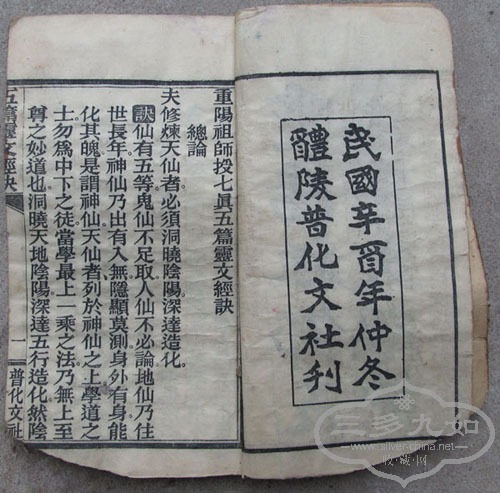 民國辛酉年仲冬
醴陵普化文社刋
重陽祖師授七眞五篇靈文經訣
總論
夫修煉天仙者必須洞曉陰陽深達造化
訣仙有五等鬼仙不足取人仙不必論地仙乃住
世長年神仙乃出有入無隱顯莫測身外有身能
化其魄是謂神仙天仙者列於神仙之上學道之
士勿爲中下之徒當學最上一乘之法乃無上至
尊之妙道也洞曉天地陰陽深達五行造化然陰
五篇靈文經訣
一
普化文社
三多九如
www.silver-china.net
收·藏·网